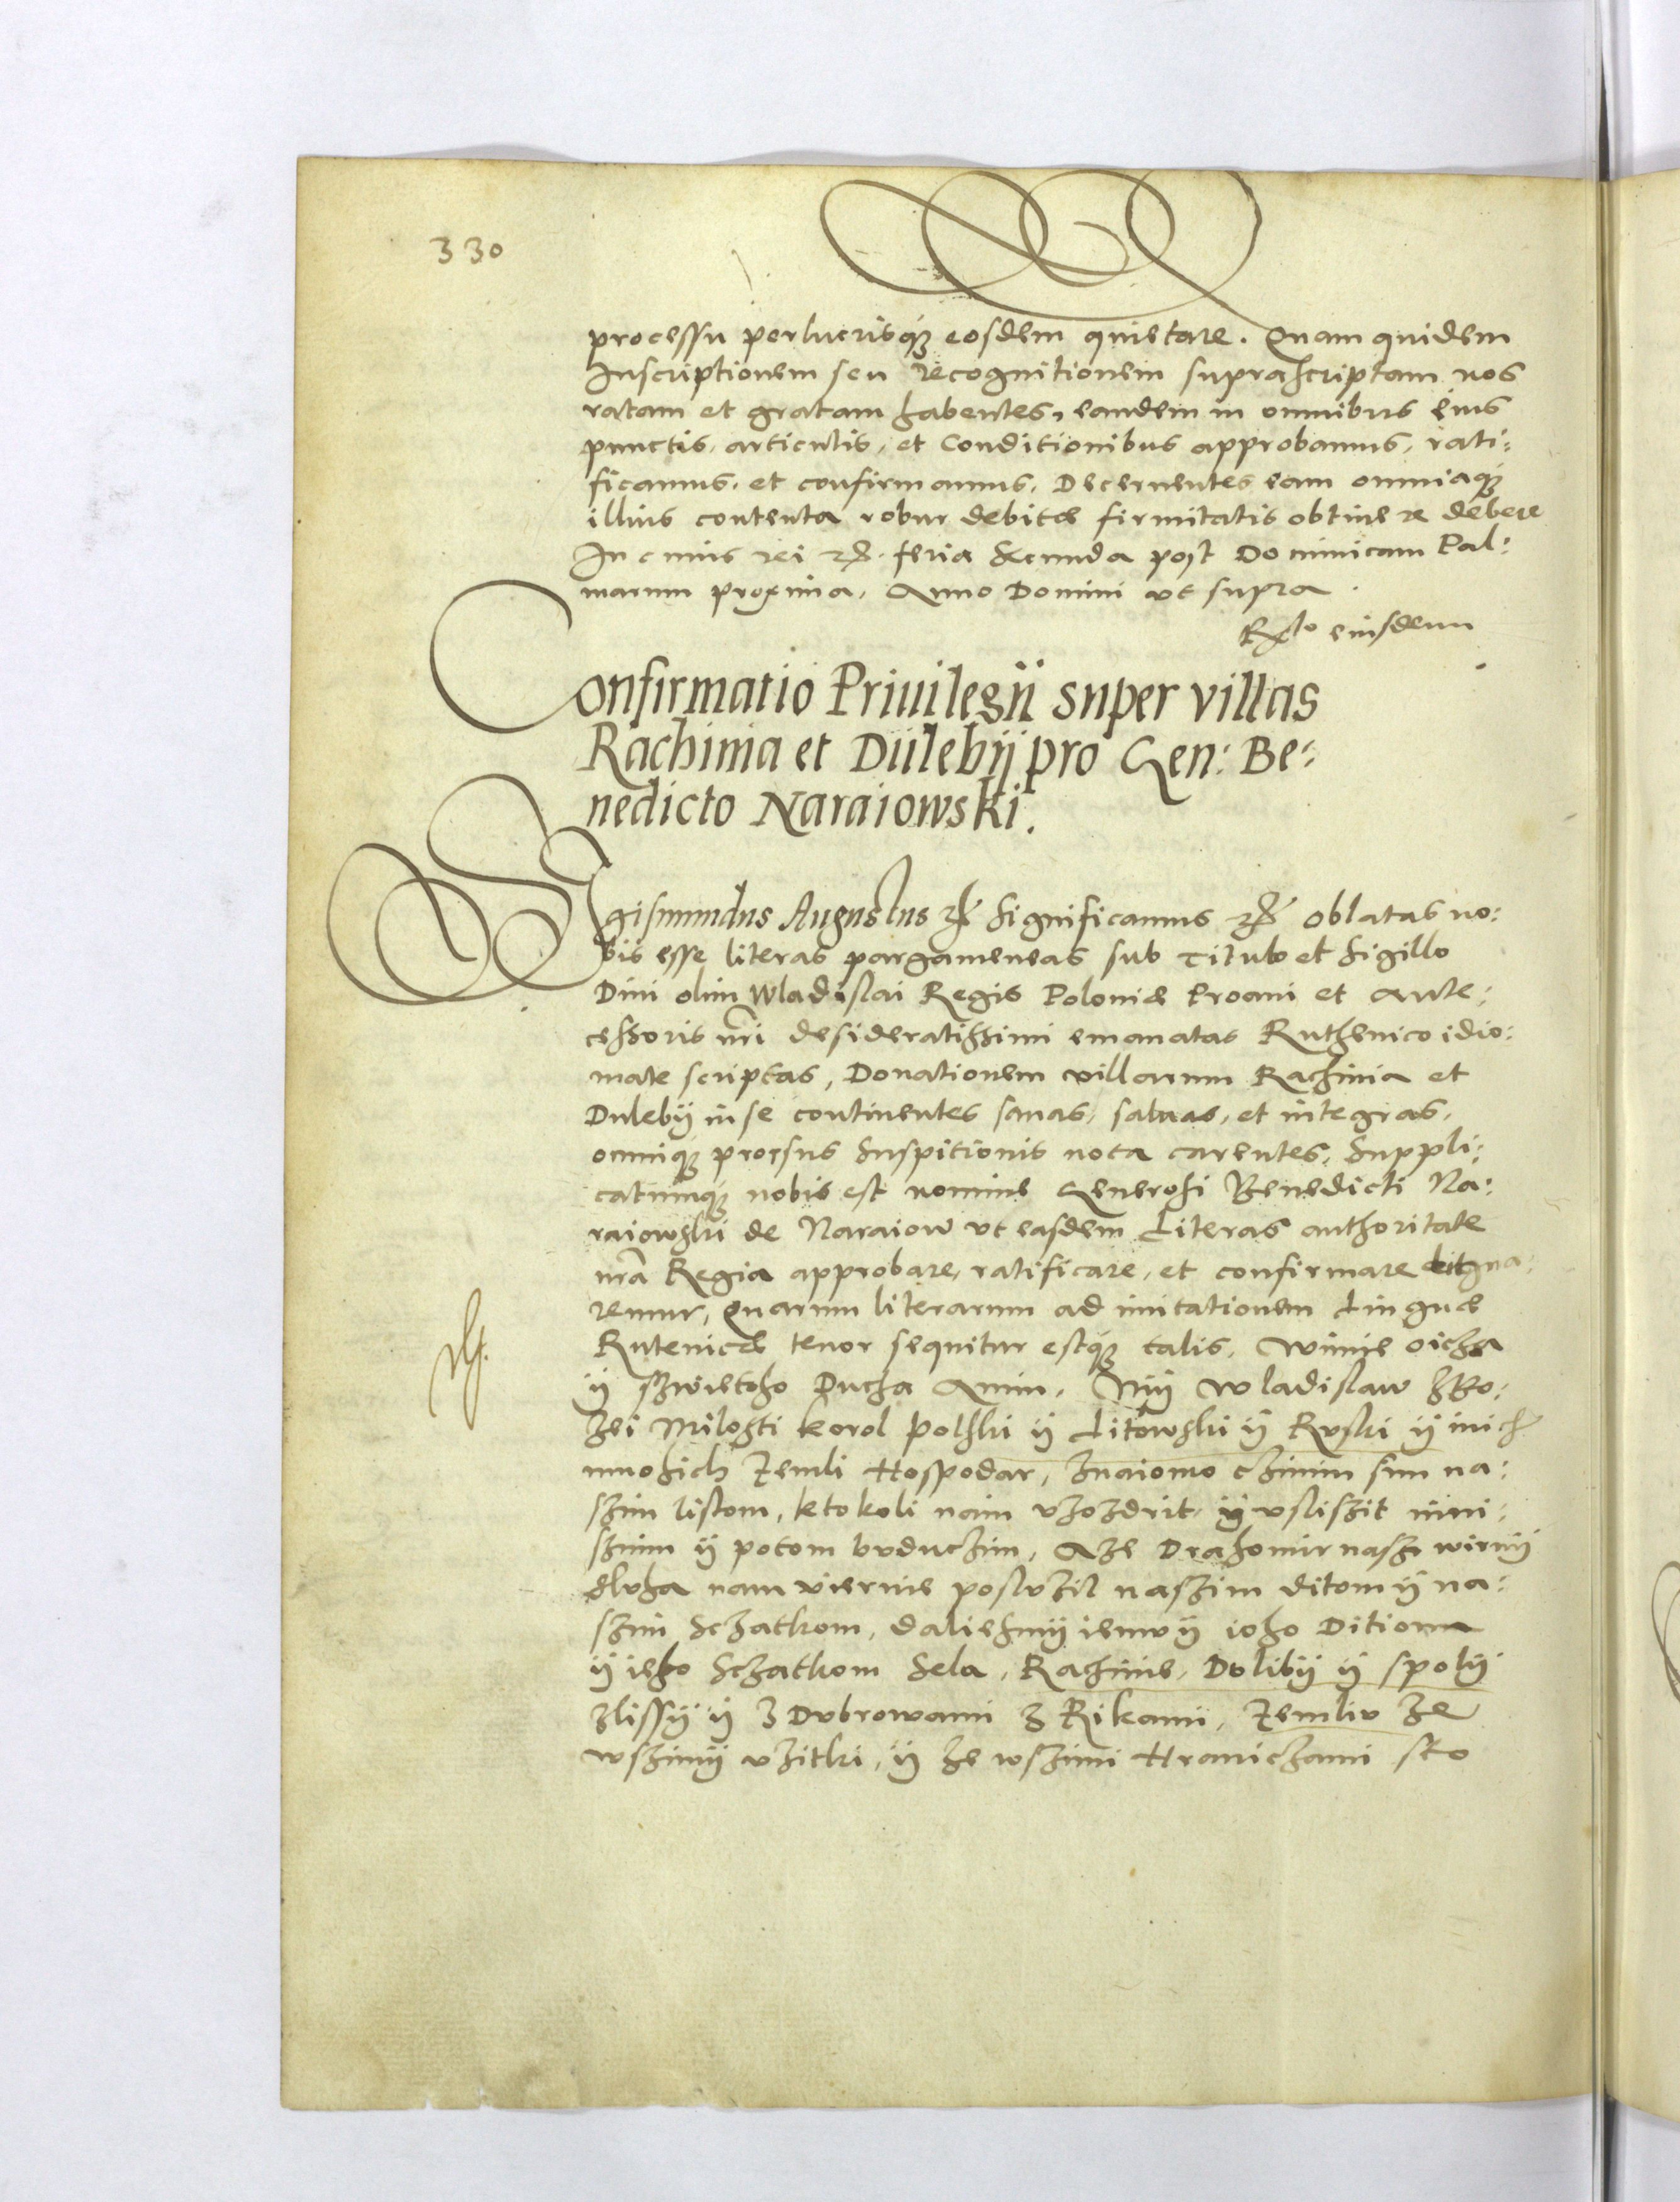 330
processu perlucrisq3 eosdem quietare. Quam quidem
Inscriptionem seu recognitionem suprascriptam nos
ratam et gratam habentes, eandem in omnibus eius
punctis, articulis, et Conditionibus approbamus, rati:
ficamus, et confirmamus, Decernentes eam omniaq3
illius contenta robur debitæ firmitatis obtinere debere
In cuius rei &c. feria secunda post Dominicam Pal:
marum proxima, Anno Domini ut supra.
Rlo eiusdem
Confirmatio Priuilegii super villas
Rachinia et Dulebÿ pro Gen: Be:
nedicto Naraiowski.
Sigismundus Augustus &c. significamus &c. oblatas no:
bis esse literas pargameneas sub Titulo et sigillo
Diui olim Wladislai Regis Poloniæ Proaui et Ante:
cessoris nri desideratissimi emanatas Ruthenico idio:
mate scriptas, Donationem villarum Rachinia et
Dulebÿ in se continentes sanas, saluas, et integras,
omniq3 prorsus suspitionis nota carentes, Suppli:
catumq3 nobis est nomine Generosi Benedicti Na:
raiowski de Naraiow ut easdem Literas authoritate
nra Regia approbare, ratificare, et confirmare digna:
remur, Quarum literarum ad imitationem Linguæ
Rutenicæ tenor sequitur estq3 talis, Wimie oicza
ÿ szwietoho Ducha Amin, Mÿ Wladislaw zBo:
zei Milosti korol polski ÿ Litowski ÿ Ruski ÿ inich
mnohich zemli Hospodar, znaiomo czinim sim na:
szim listom, ktokoli nain uzozdrit ÿ usliszit nini:
sznim ÿ potom buduczim, Aze Drahomir nasz wirnÿ
sluha nam viernie posluzil naszim ditom ÿ na:
szim Sczatkom, daliesmÿ iemu ÿ ioho Ditiom
ÿ ieho Sczatkom Sela, Rachinie, Dolibÿ ÿ spolÿ
zlissÿ ÿ z Dubrowami z Rikami, zemliu ze
wszimÿ uzitki, ÿ ze wszimi Hraniczami sto